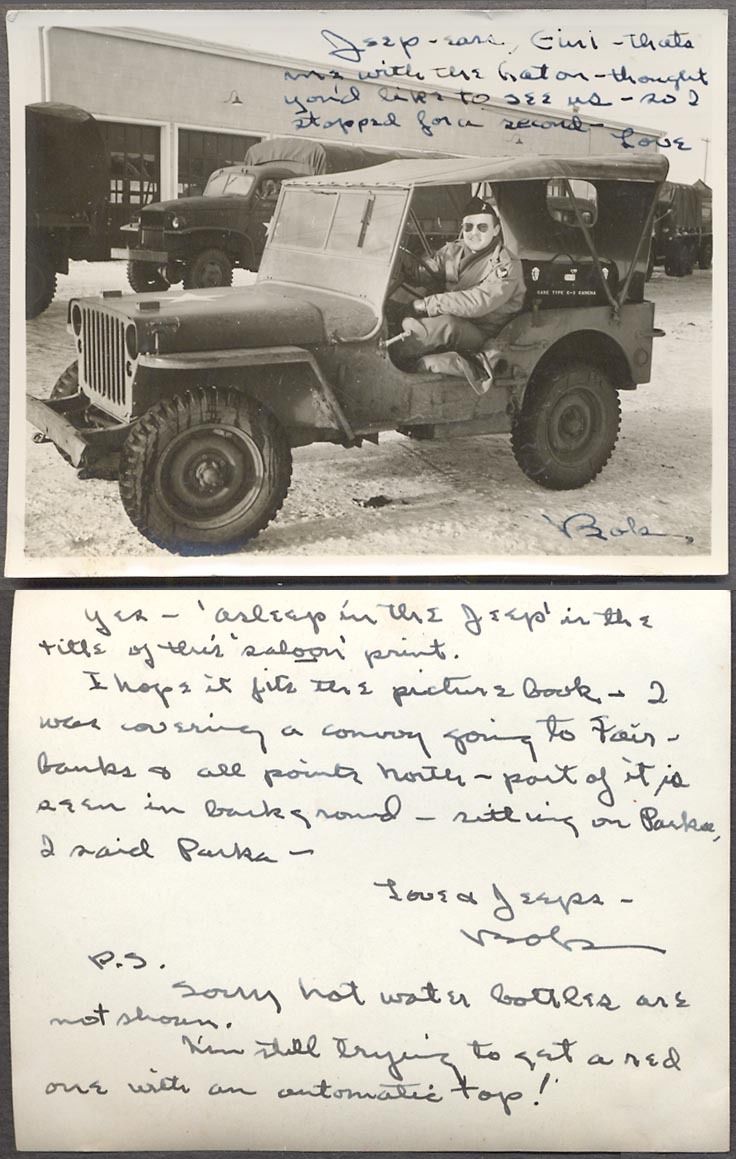 Jeep-ears, Girl - thats
me with the hat on - thought
you'd like to see us - so I
stopped for a second -
Love
CASE TYPE K-2 CAMERA
Bob
Yes - 'asleep in the Jeep' is the
title of this 'saloon' print.
I hope it fits the picture book - I
was covering a convoy going to Fair-
banks & all points North - part of it is
seen in background - sitting on Parka,
I said Parka -
Love & Jeeps -
Bob
P.S.
Sorry hot water bottles are
not shown.
I'm still trying to get a red
one with an automatic top!